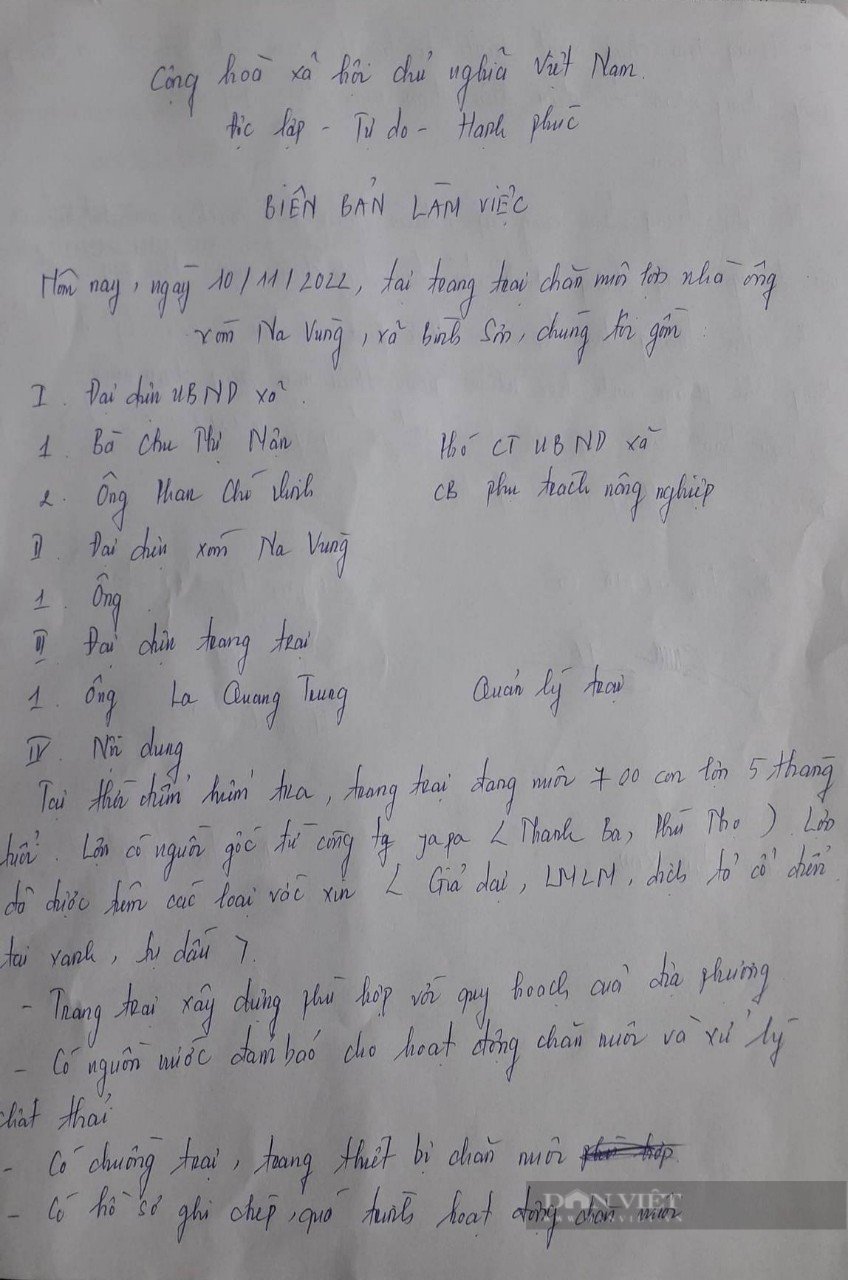 Cộng hoà xã hội chủ nghĩa Việt Nam
Độc lập - Tự do - Hạnh phúc
BIÊN BẢN LÀM VIỆC
Hôm nay, ngày 10/11/2022, tại trang trại chăn nuôi lợn nhà ông
xóm Na Vùng, xã Bình Sơn, chúng tôi gồm:
I. Đại diện UBND xã.
1. Bà Chu Thị Mận Phó CT UBND xã
2. Ông Phan Chí CB phụ trách nông nghiệp
II. Đại diện xóm Na Vùng
1. Ông
III. Đại diện trang trại
1. Ông La Quang Trung Quản lý trại
IV. Nội dung
Tại thời điểm kiểm tra, trang trại đang nuôi 700 con lợn 5 tháng
tuổi. Lợn có nguồn gốc từ công ty Japa (Thanh Ba, Phú Thọ) Lợn
đã được tiêm các loại vác xin (Giả dại, LMLM, dịch tả cổ điển
tai xanh, tụ dấu).
- Trang trại xây dựng phù hợp với quy hoạch của địa phương
- Có nguồn nước đảm bảo cho hoạt động chăn nuôi và xử lý
chất thải
- Có chuồng trại, trang thiết bị chăn nuôi
- Có hồ sơ ghi chép, quá trình hoạt động chăn nuôi
DÂN VIỆT